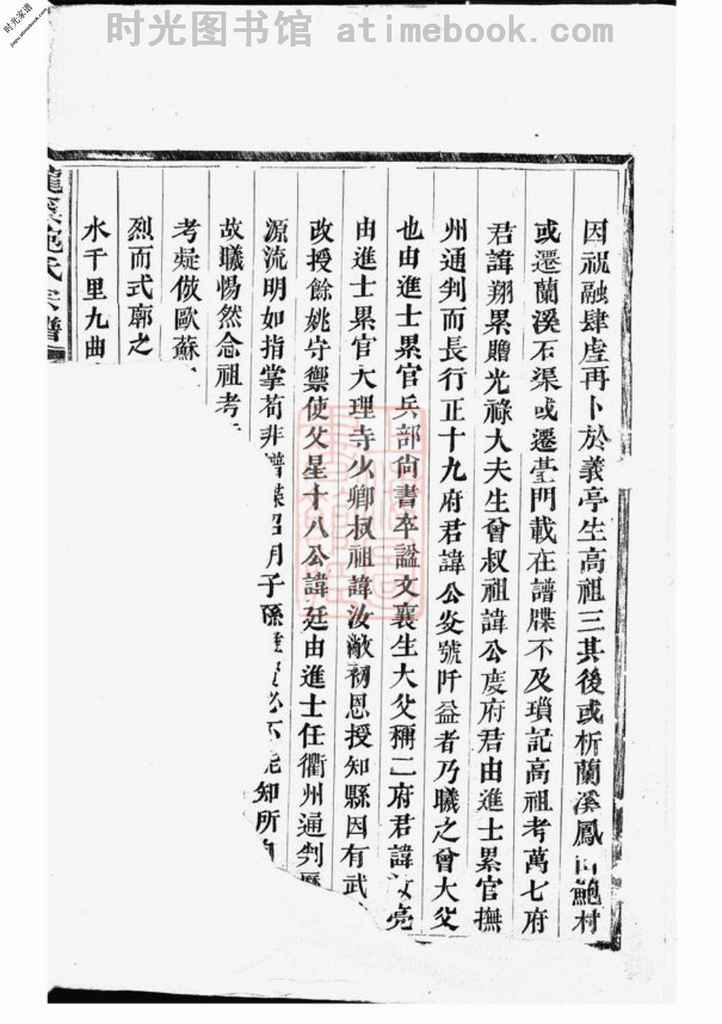 时光图书馆 atimebook.com
时光家谱
因祝融肆虐再卜於義亭生高祖三其後或析蘭溪鳳山鮑村
或遷蘭溪石渠或遷臺門載在譜牒不及瑣記高祖考萬七府
君諱翔累贈光祿大夫生曾叔祖諱公度府君由進士累官撫
州通判而長行正十九府君諱公安號阡益者乃曦之曾大父
也由進士累官兵部尚書卒諡文襄生大父稱二府君諱汝亮
由進士累官大理寺少卿叔祖諱汝敝初恩授知縣因有武
改授餘姚守禦使父星十八公諱廷由進士任衢州通判歷
源流明如指掌苟非譜牒昭明子孫必不能知所自
故曦惕然念祖考
考疑倣歐蘇
烈而式廓之
水千里九曲
龍溪鮑氏宗譜